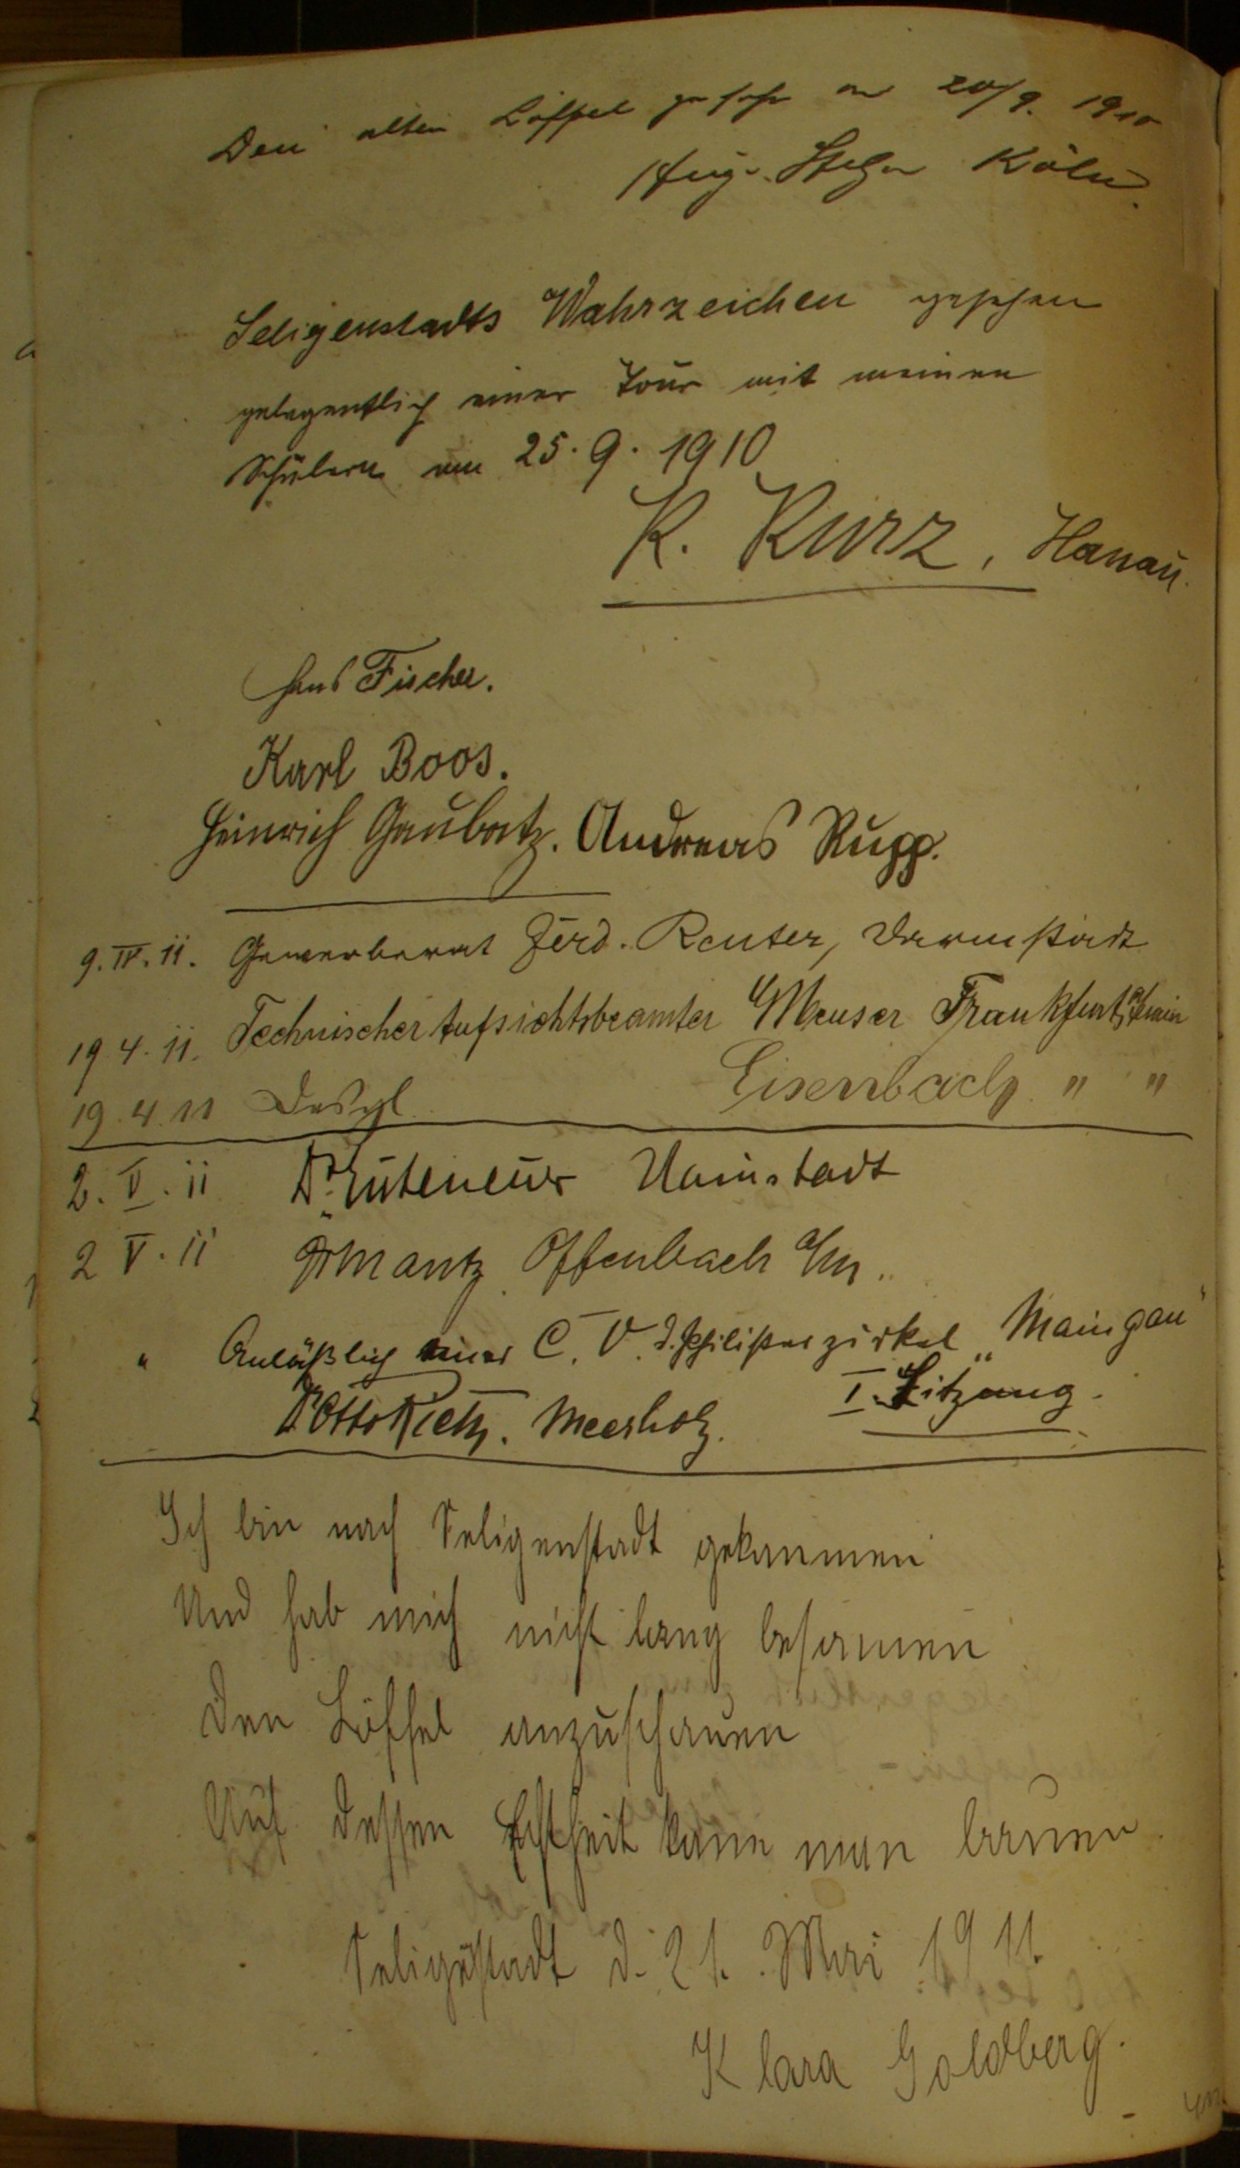 Den alten Löffel gesehn am 20/9. 1910
Aug. Köln.
Seligenstadts Wahrzeichen gesehen
gelegentlich einer Tour mit meinen
Schülern am 25.9.1910
K. Kurz, Hanau.
Hans Fischer.
Karl Boos.
Heinrich Gaubatz. Andreas Rupp.
9.IV.11. Gewerberat Ferd. Reuter, Darmstadt
19 4. 11. Technischer Aufsichtsbeamter Meuser Frankfurt a/Main
19.4.11 Desgl. Eisenbach " "
2. V. 11 Dr. Euteneuer Hainstadt
2 V. 11 Mantz Offenbach a/M.
" Anläßlich einer C. V. Philisterzirkel „Maingau"
I. Sitzung.
Dr Otto Rieth. Meerholz.
Ich bin nach Seligenstadt gekommen
Und hab mich nicht lang besonnen
Den Löffel anzuschauen
Auf dessen Echtheit kann man bauen.
Seligenstadt d. 21. Mai 1911.
Klara Goldberg.